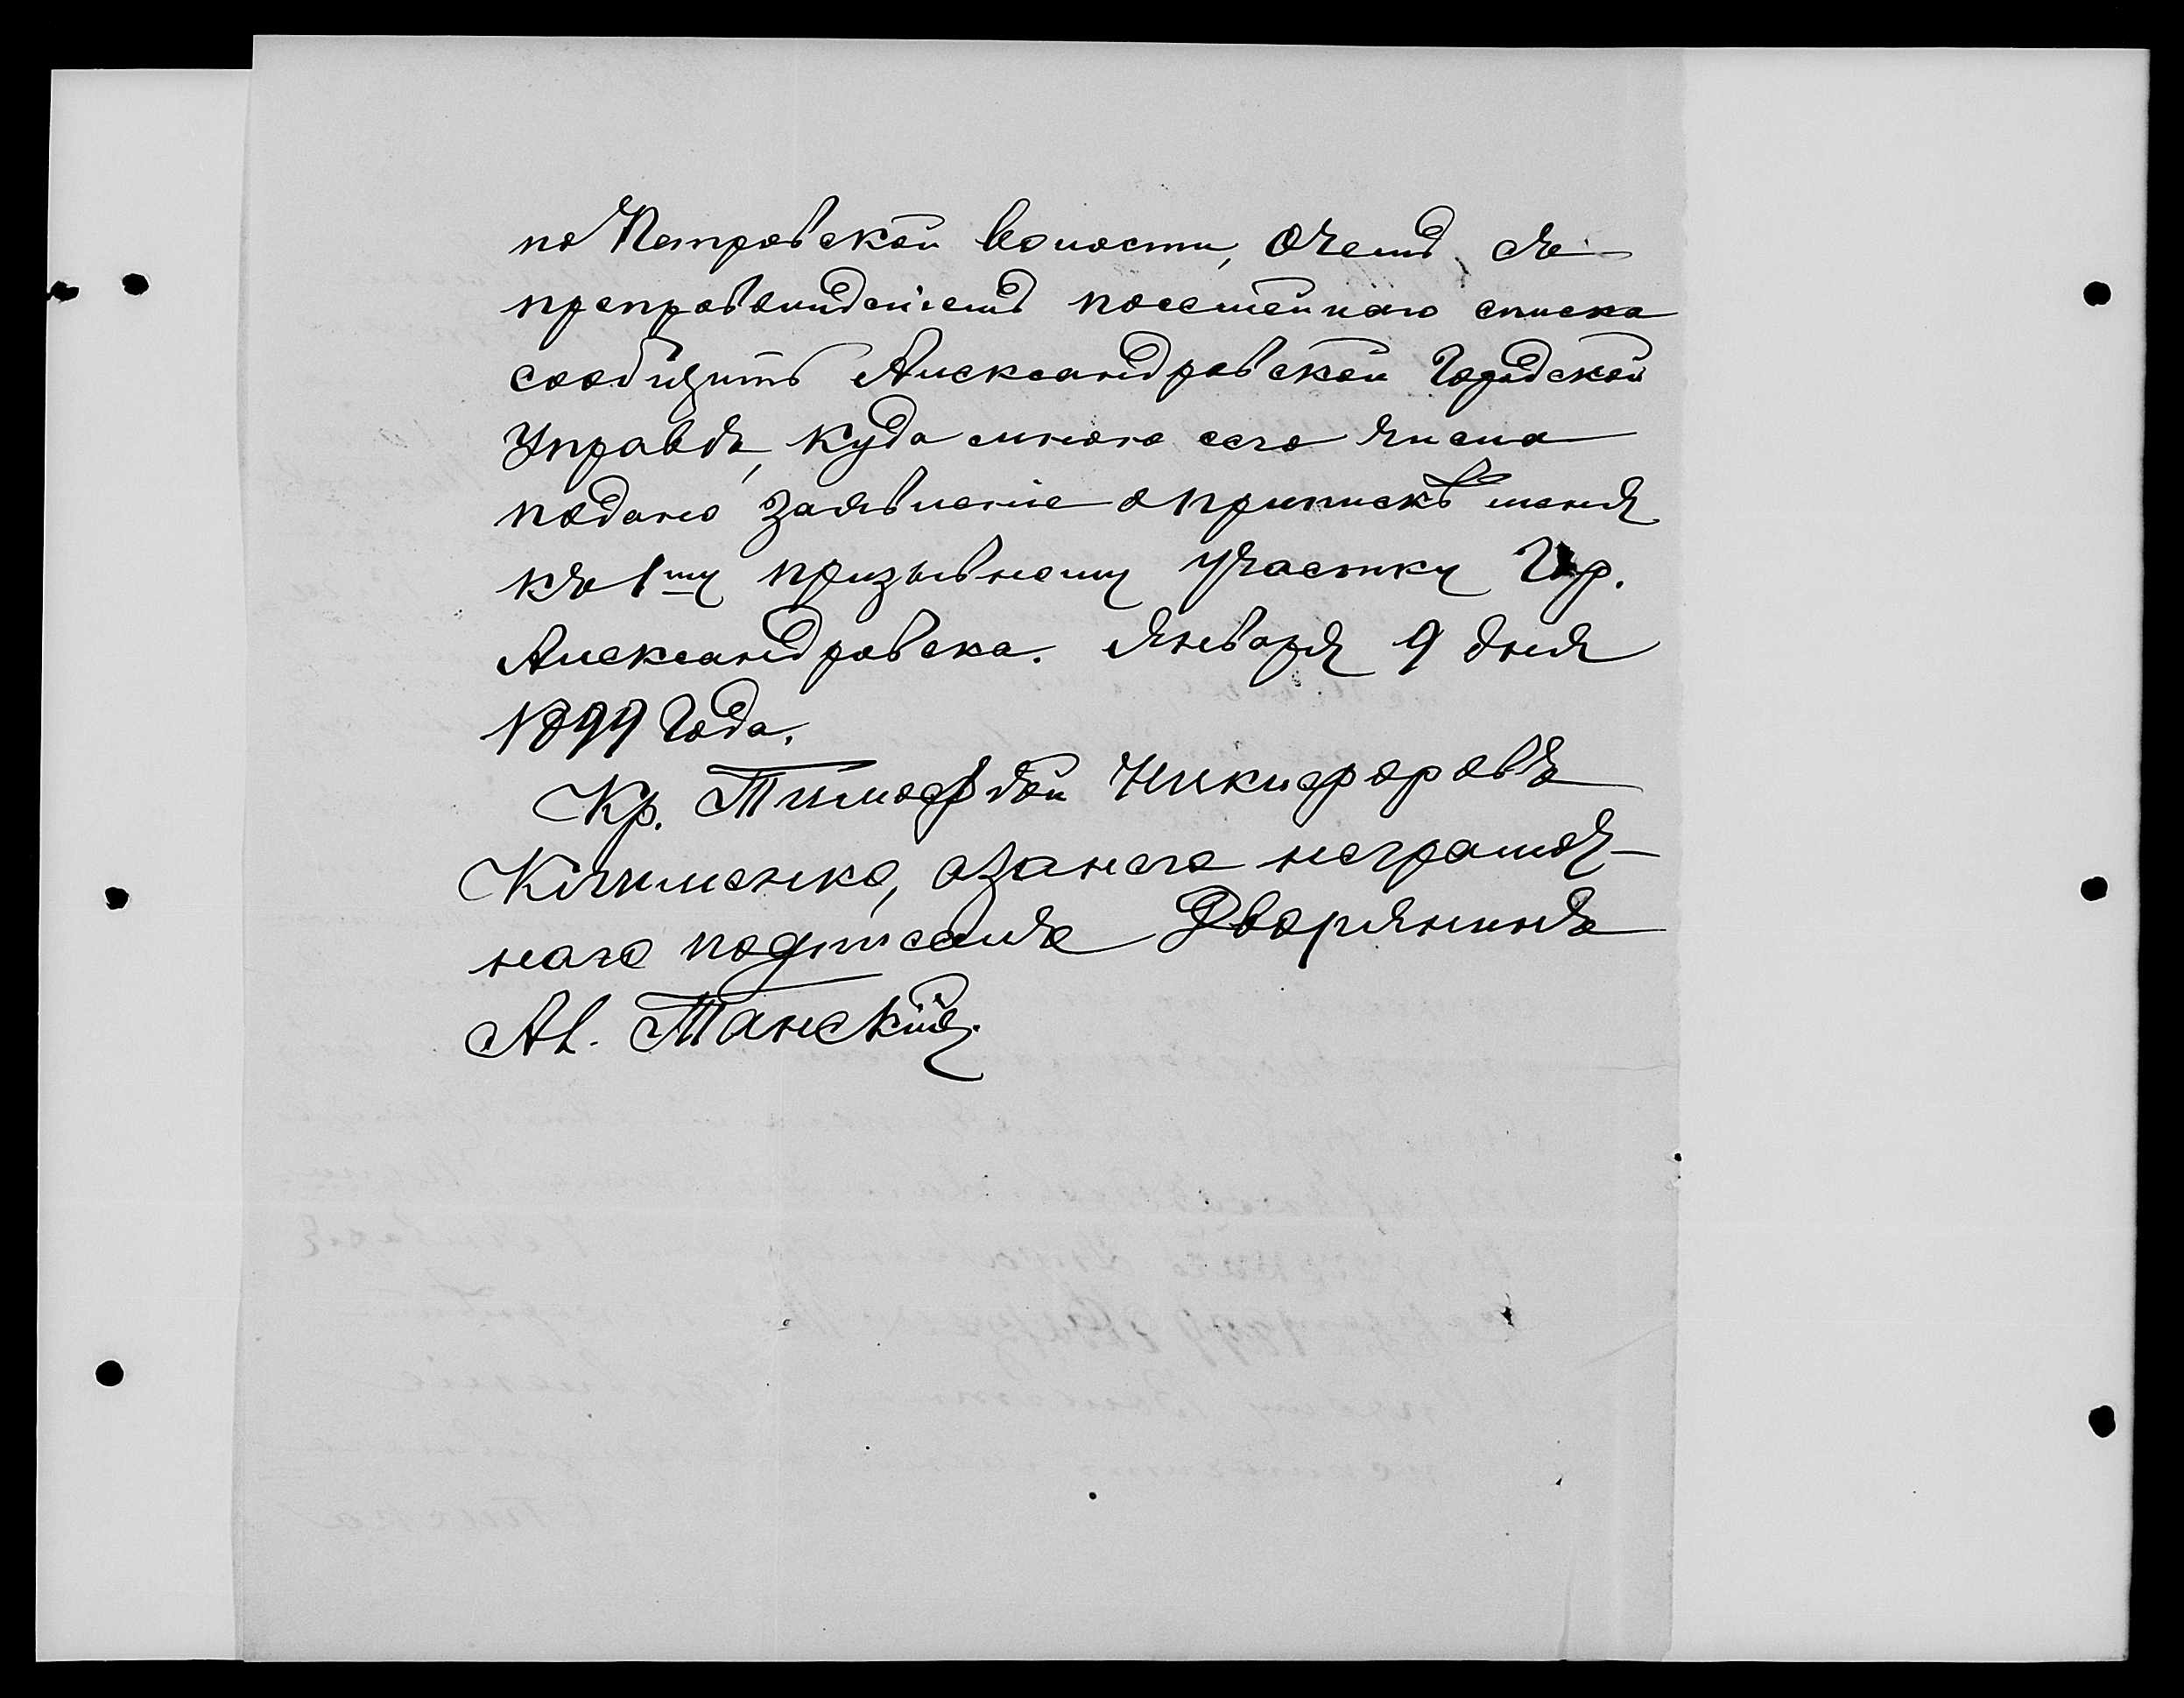 по Петровской волости, о чемъ съ
препровожденіемъ посемейнаго списка
сообщить Александровской Городской
Управѣ, куда мною сего числа
подано заявленіе о припискѣ меня
къ 1му призывному участку Гор.
Александровска. Января 9 дня
1899 года.
Кр. Тимофѣй Никифоровъ
Клименко, а за него неграмот-
наго подписалъ Дворянинъ
Ал. Танскій.